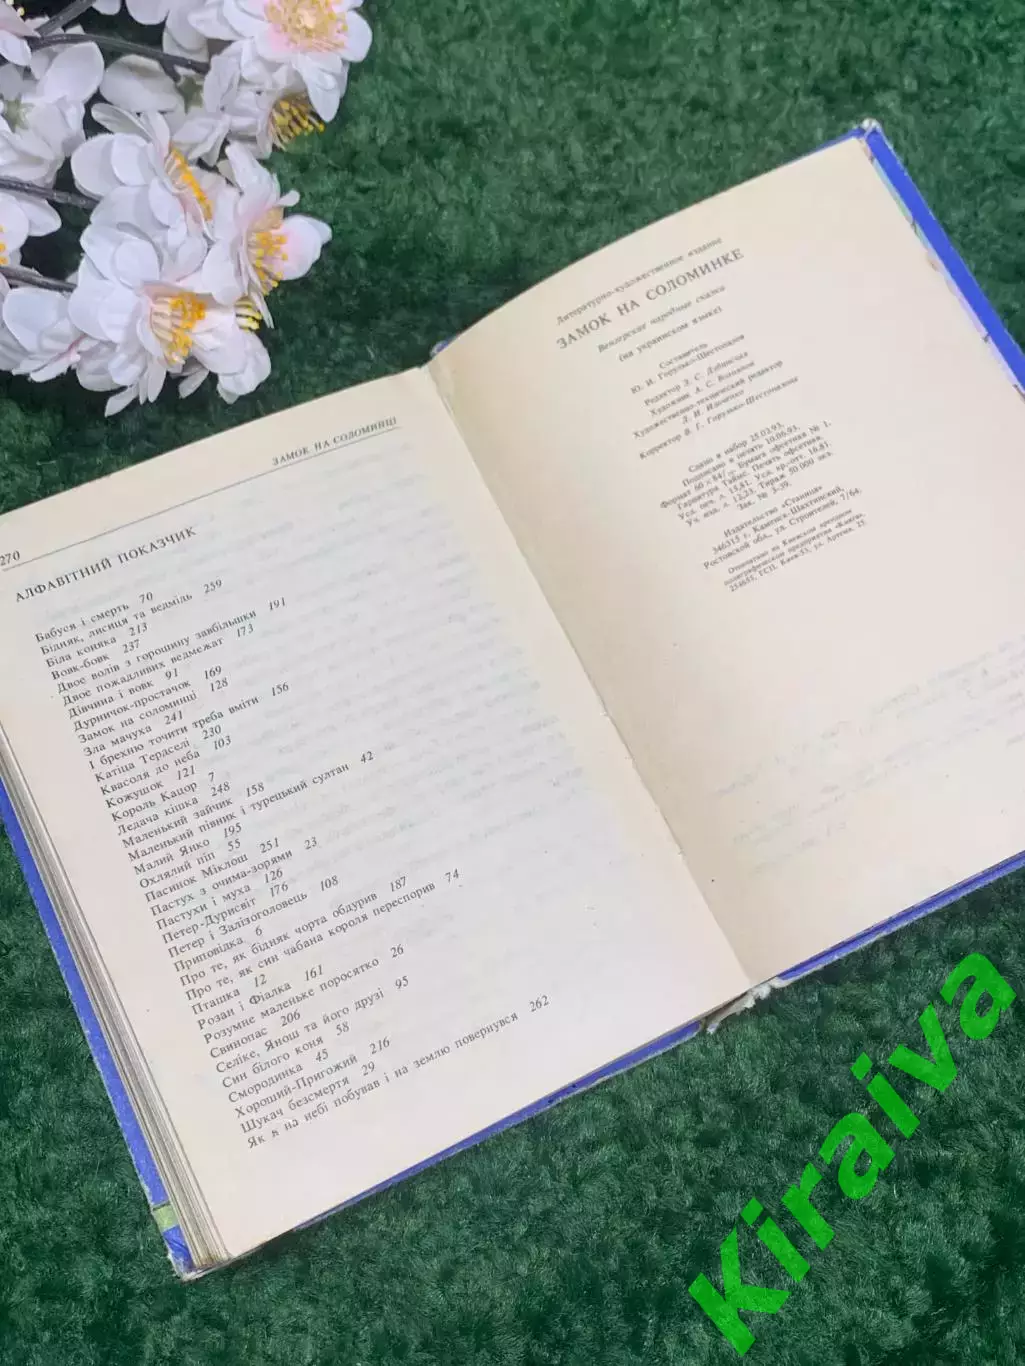 270
ЗАМОК НА СОЛОМИНЦІ
АЛФАВІТНИЙ ПОКАЗЧИК
Бабуся і смерть 70
Бідняк, лисиця та ведмідь 259
Біла коняка 213
Вовк-бовк 237
Двоє волів з горошину завбільшки 191
Двоє пожадливих ведмежат 173
Дівчина і вовк 91
Дурничок-простачок 169
Замок на соломинці 128
Зла мачуха 241
І брехню точити треба вміти 156
Катіца Терделі 230
Квасоля до неба 103
Кожушок 121
Король Кацор 7
Ледача кішка 248
Маленький зайчик 158
Маленький півник і турецький султан 42
Малий Янко 195
Охлялий піп 55
Пасинок Міклош 251
Пастух з очима-зорями 23
Пастухи і муха 126
Петер-Дурисвіт 176
Петер і Залізоголовець 108
Приповідка 6
Про те, як бідняк чорта обдурив 187
Про те, як син чабана короля переспорив 74
Пташка 12
Розан і Фіалка 161
Розумне маленьке поросятко 26
Свинопас 206
Селіке, Янош та його друзі 95
Син білого коня 58
Смородинка 45
Хороший-Пригожий 216
Шукач безсмертя 29
Як я на небі побував і на землю повернувся 262
Литературно-художественное издание
ЗАМОК НА СОЛОМИНКЕ
Венгерские народные сказки
(на украинском языке)
Составитель
Ю. И. Горулько-Шестопалов
Редактор Л. С. Дубинская
Художник А. С.
Художественно-технический редактор
Л. И. Ильченко
Корректор В. Г. Горулько-Шестопалова
Сдано в набор 25.03.93.
Подписано в печать 10.06.93.
Формат 60×84/ Бумага офсетная № 1.
Гарнитура Таймс. Печать офсетная.
Усл. печ. л. 15,81. Усл. кр.-отт. 16,81.
Уч. изд. л. 12,23. Тираж 50 000 экз.
Зак. № 3-39.
Издательство «Станица»
346315 г. Каменск-Шахтинский,
Ростовской обл., ул. Строителей, 7/64.
Отпечатано на Киевском арендном
полиграфическом предприятии «Книга».
254655, ГСП, Киев-53, ул. Артема, 25.
Kiraiva